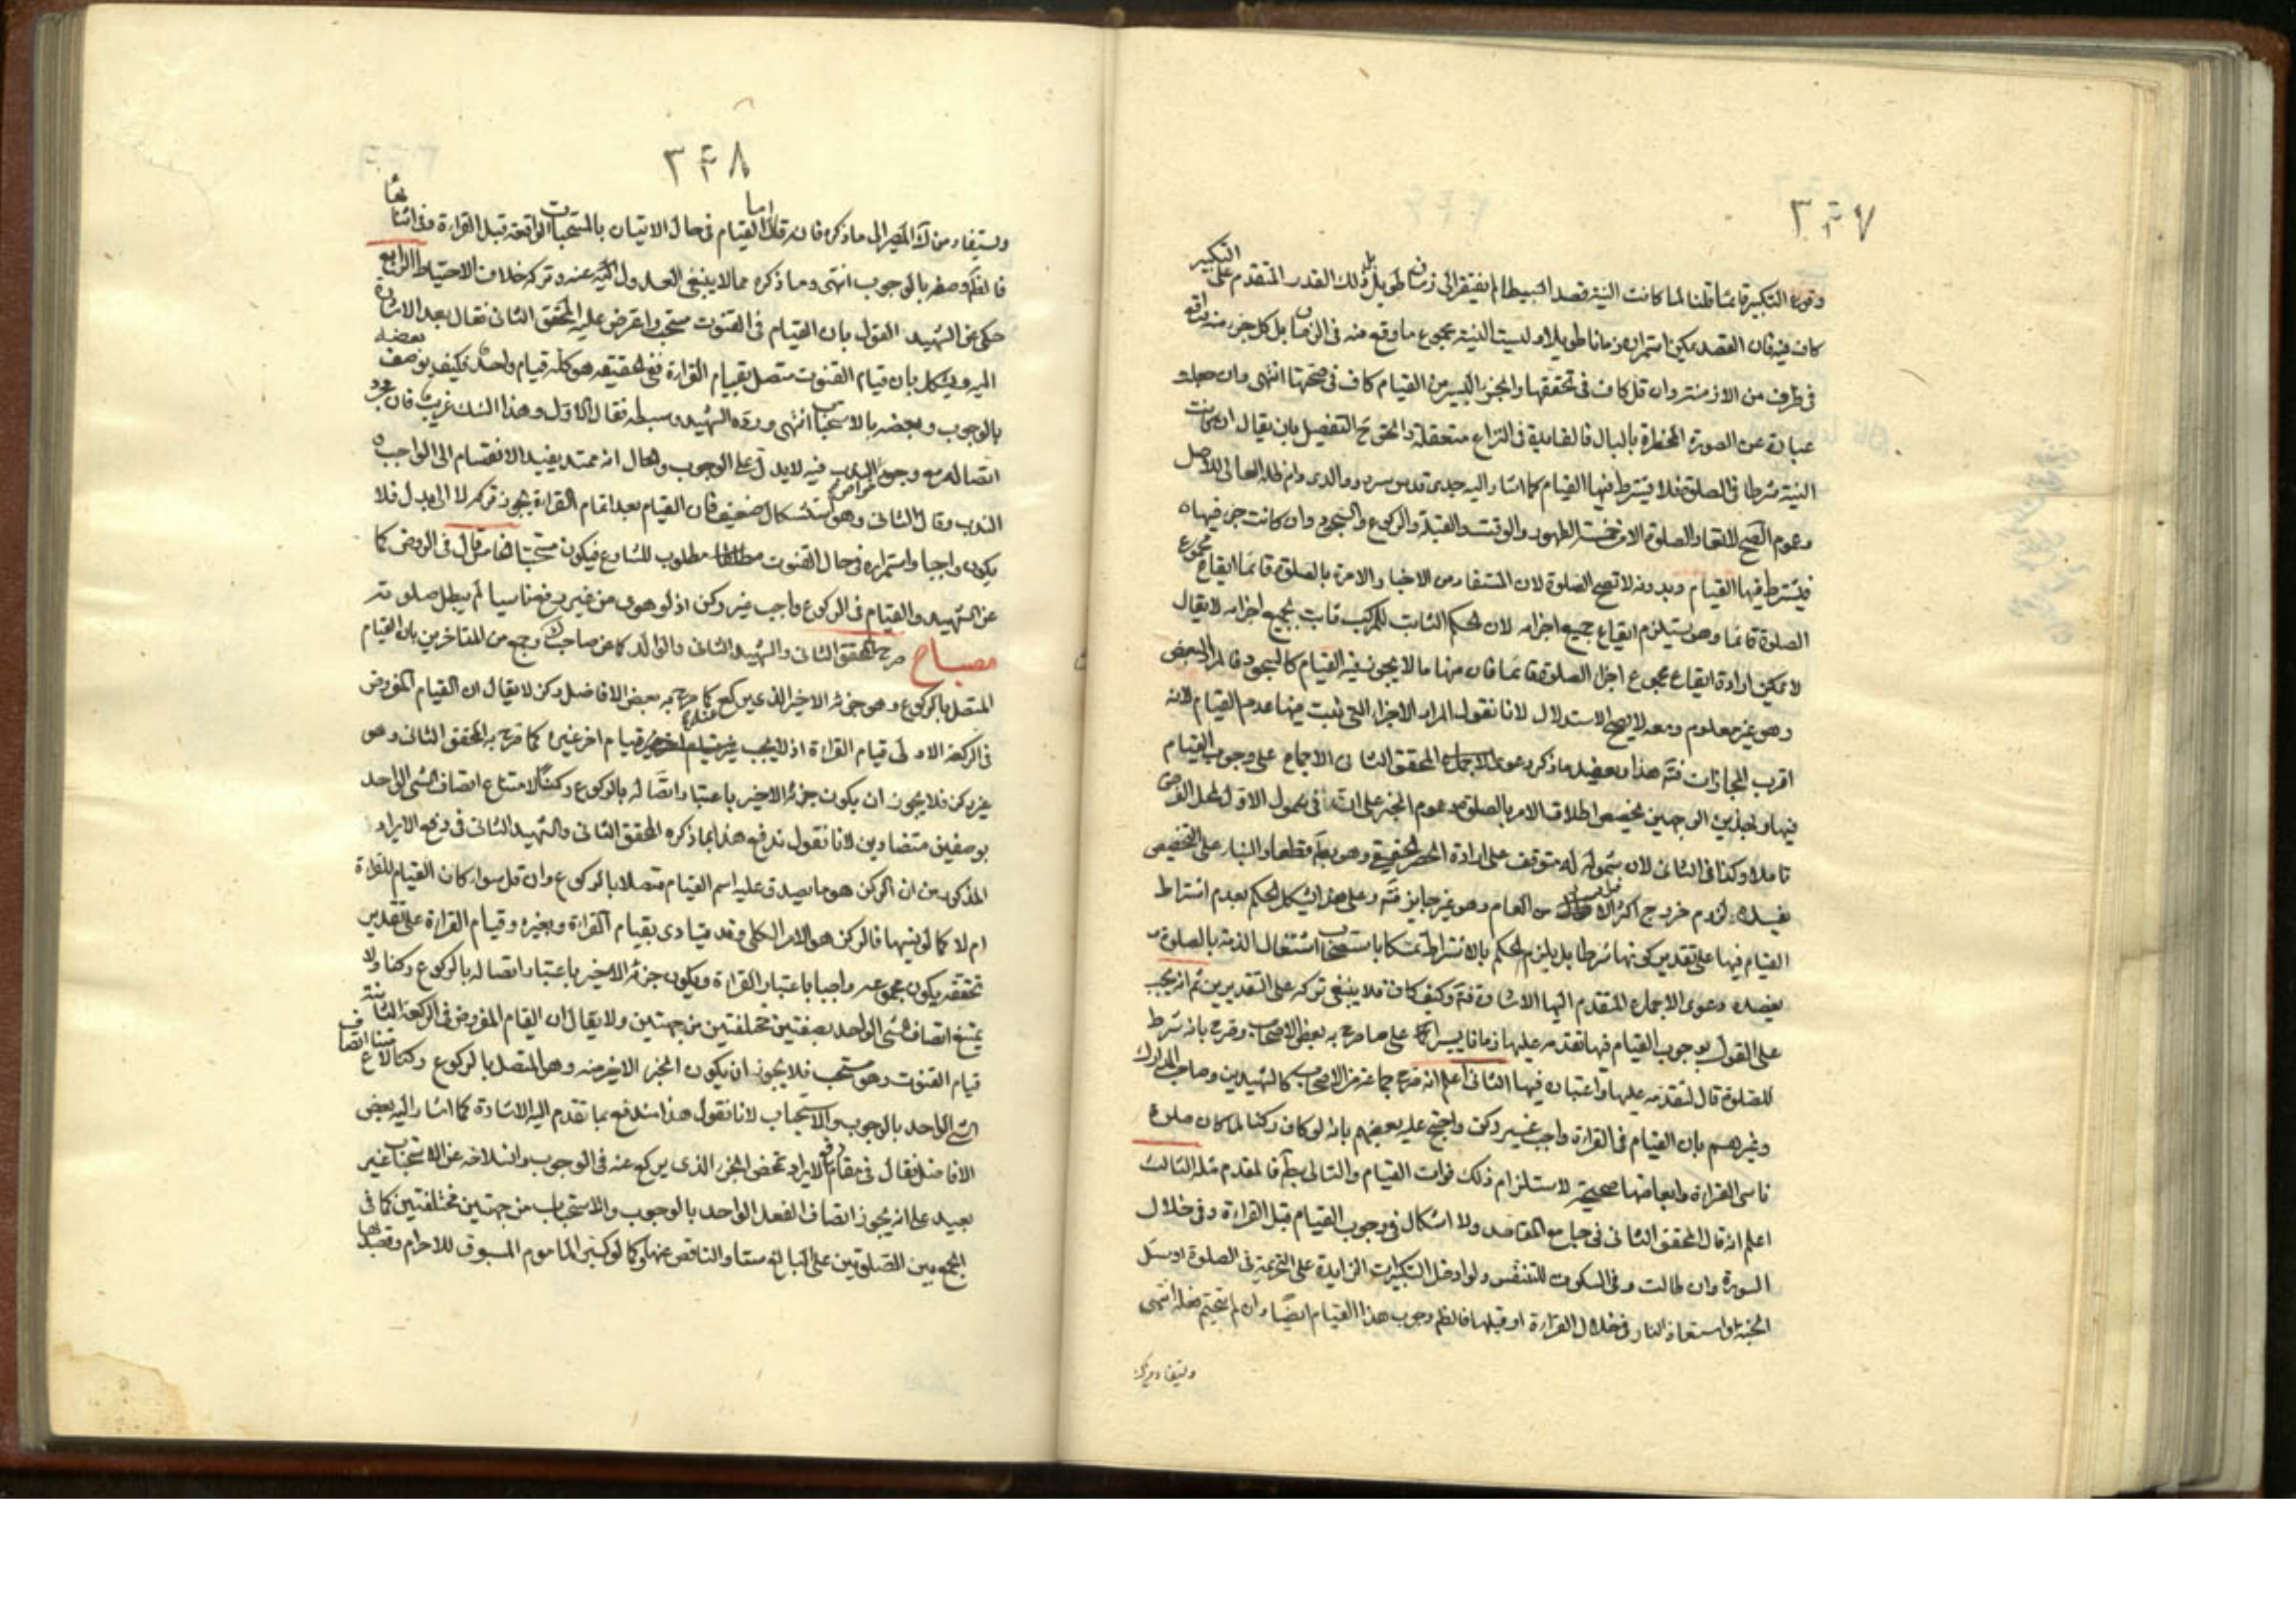 ٣٤٧
وقوع التكبير قائما قلنا لما كانت النية قصدا بسيطا لم يفتقر الى زمان طويل بل ذلك القدر المتقدم على التكبير
كاف فيه فان القصد يمكن استمراره زمانا طويلا وليست النية مجموع ما وقع منه في الزمان بل كل جزء منه واقع
في طرف من الازمنة وان قل كاف في تحققها والجزء اليسير من القيام كاف في صحتها انتهى وان جعلت
عبارة عن الصورة المخطرة بالبال فالفايدة في النزاع متحققة والحق ح التفصيل بان يقال ان كانت
النية شرطا في الصلوة فلا يشترط فيها القيام كما اشار اليه جدى قدس سره ووالدى دام ظله العالى للاصل
وعموم الصحيح لا تعاد الصلوة الا من خمسة الطهور والوقت والقبلة والركوع والسجود وان كانت جزءا فيها
فيشترط فيها القيام وبدونه لا تصح الصلوة لان المستفاد من الاخبار الامرة بالصلوة قائما ايقاع مجموع
الصلوة قائما وهو يستلزم ايقاع جميع اجزائه لان الحكم الثابت للمركب ثابت لجميع اجزائه لا يقال
لا يمكن ارادة ايقاع مجموع اجزاء الصلوة قائما فان منها ما لا يجوز فيه القيام كالسجود فالمراد البعض
وهو غير معلوم ومعه لا يصح الاستدلال لانا نقول المراد الاجزاء التى لم يثبت فيها عدم القيام لانه
اقرب المجازات فتم هذا ويعضد ما ذكر دعوى المحقق الثانى الاجماع على وجوب القيام
فيها وبهذين الوجهين يخصص اطلاق الامر بالصلوة وعموم الخبر على ان في شمول الاول لمحل الفرض
تاملا وكذا في الثانى لان شموله له متوقف على ارادة الحصر الحقيقى وهو بعيد قطعا والبناء على التخصيص
بعيد للزوم خروج اكثر الافراد من العام وهو غير جايز فتم وعلى هذا يشكل الحكم بعدم اشتراط
القيام فيها على تقدير كونها شرطا بل يلزم الحكم بالاشتراط تمسكا باستصحاب اشتغال الذمة بالصلوة و
يعضده دعوى الاجماع المتقدم اليها الاشارة فتم وكيف كان فلا ينبغى تركه على التقديرين ثم انه يجب
على القول بوجوب القيام فيها تقدمه عليها زمانا يسيرا كما على ما صرح به بعض الاصحاب وصرح بانه شرط
للصلوة قال لتقدمه عليها واعتباره فيها الثانى اعلم انه صرح جماعة من الاصحاب كالشهيدين وصاحب المدارك
وغيرهم بان القيام في القراءة واجب غير ركن واحتج عليه بعضهم بانه لو كان ركنا لما كان صلوة
ناسى القراءة وابعاضها صحيحة لاستلزام ذلك فوات القيام والتالى بط فالمقدم مثله الثالث
اعلم انه قال المحقق الثانى في جامع المقاصد ولا اشكال في وجوب القيام قبل القراءة وفي خلال
السورة وان طالت وفي السكوت للتنفس ولو ادخل التكبيرات الزايدة على التحريمة في الصلوة او سئل
الجنة او استعاذ النار في خلال القراءة او قبلها فالظ وجوب هذا القيام ايضا وان لم يتحتم فعله انتهى
ويستفاد من ك
٣٤٨
ويستفاد من ك المصير الى ما ذكره فانه قال اما القيام في حال الاتيان بالمستحبات الواقعة قبل القراءة وفي اثنائها
فالظ وصفه بالوجوب انتهى وما ذكره مما لا ينبغى العدول اليه عنه وتركه خلاف الاحتياط الرابع
حكى عن الشهيد القول بان القيام في القنوت مستحب واعترض عليه المحقق الثانى فقال بعد الاشارة
اليه ويشكل بان قيام القنوت متصل بقيام القراءة ففي الحقيقة هو كله قيام واحد فكيف يوصف بعضه
بالوجوب وبعضه بالاستحباب انتهى ورده الشهيد وسبطه فقال الاول وهذا الشك غريب فان مجرد
اتصاله مع وجود الندب فيه لا يدل على الوجوب والحال انه ممتد يفيد الانقسام الى الواجب و
الندب وقال الثانى وهو استشكال ضعيف فان القيام بعد اتمام القراءة يجوز تركه لا الى بدل فلا
يكون واجبا واستمراره في حال القنوت مطلوب للشارع فيكون مستحبا الخامس قال في الروض كما
عن الشهيد والقيام في الركوع واجب غير ركن اذ لو هوى من غير رفع ناسيا لم يبطل صلوته
مصباح صرح المحقق الثانى والشهيد الثانى والوالد كما عن صاحب ك وجمع من المتاخرين بان القيام
المتصل بالركوع وهو جزئه الاخير الذى عنه يركع كما صرح به بعض الافاضل ركن لا يقال ان القيام المفروض
في الركعة الاولى قيام القراءة اذ لا يجب عندنا قيام اخر غيره كما صرح به المحقق الثانى وهو
غير ركن فلا يجوز ان يكون جزئه الاخير باعتبار اتصاله بالركوع ركنا لامتناع اتصاف الشى الواحد
بوصفين متضادين لانا نقول يدفع هذا بما ذكره المحقق الثانى والشهيد الثانى في دفع الايراد
المذكور من ان الركن هو ما يصدق عليه اسم القيام متصلا بالركوع وان قل سواء كان القيام للقراءة
ام لا كما لو نسيها فالركن هو الامر الكلى وقد يتادى بقيام القراءة وبغيره وقيام القراءة على تقدير
تحققه يكون مجموعه واجبا باعتبار القراءة ويكون جزئه الاخير باعتبار اتصاله بالركوع ركنا ولا
يمتنع اتصاف الشى الواحد بصفتين مختلفتين من جهتين ولا يقال ان القيام المفروض في الركعة الثانية
قيام القنوت وهو مستحب فلا يجوز ان يكون الجزء الاخير منه وهو المتصل بالركوع ركنا لامتناع اتصاف
الشى الواحد بالوجوب والاستحباب لانا نقول هذا مندفع بما تقدم اليه الاشارة كما اشار اليه بعض
الافاضل فقال في مقام دفع الايراد تمحض الجزء الذى يركع عنه في الوجوب وانسلاخه عن الاستحباب غير
بعيد على انه يجوز اتصاف الفعل الواحد بالوجوب والاستحباب من جهتين مختلفتين كما في
الجمع بين الصلوتين على البالغ ستا والناقص عنها وكما لو كبر الماموم المسبوق للاحرام وقصد بها